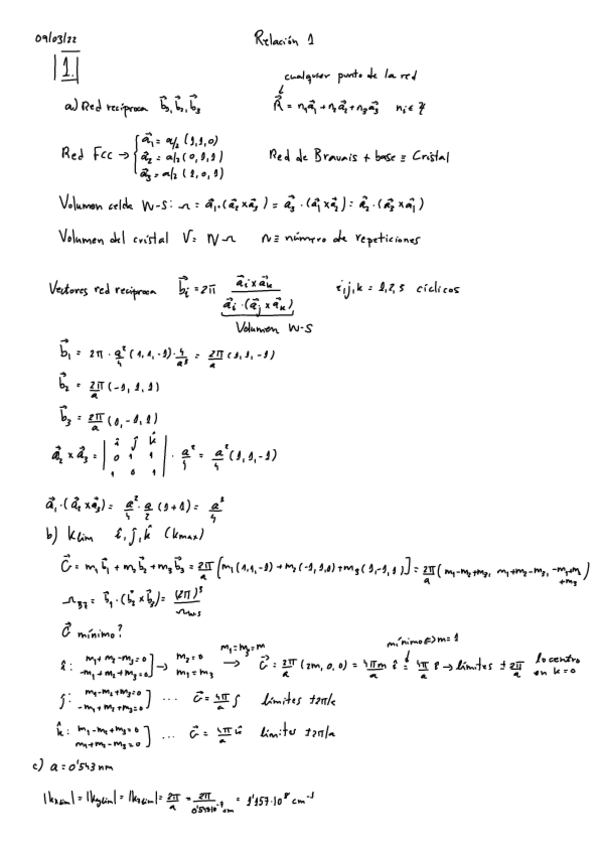 09/03/22
Relación 1
|1.|
cualquier punto de la red
a) Red recíproca b⃗₁, b⃗₂, b⃗₃   R⃗ = n₁a⃗₁ + n₂a⃗₂ + n₃a⃗₃   nᵢ ∈ ℤ
Red Fcc → { a⃗₁ = a/2 (1,1,0)
a⃗₂ = a/2 (0,1,1)   Red de Bravais + base ≡ Cristal
a⃗₃ = a/2 (1,0,1)
Volumen celda W-S: Ω = a⃗₁·(a⃗₂ x a⃗₃) = a⃗₃·(a⃗₁ x a⃗₂) = a⃗₂·(a⃗₃ x a⃗₁)
Volumen del cristal V = NΩ   N ≡ número de repeticiones
Vectores red recíproca   b⃗ᵢ = 2π (a⃗ⱼ x a⃗ₖ) / (a⃗ᵢ·(a⃗ⱼ x a⃗ₖ))   i,j,k = 1,2,3 cíclicos
Volumen W-S
b⃗₁ = 2π · a²/4 (1,1,-1) · 4/a³ = 2π/a (1,1,-1)
b⃗₂ = 2π/a (-1,1,1)
b⃗₃ = 2π/a (1,-1,1)
a⃗₂ x a⃗₃ = | î ĵ k̂ ; 0 1 1 ; 1 0 1 | · a²/4 = a²/4 (1,1,-1)
a⃗₁·(a⃗₂ x a⃗₃) = a²/4 · a/2 (1+1) = a³/4
b) klim   î, ĵ, k̂   (kmax)
G⃗ = m₁b⃗₁ + m₂b⃗₂ + m₃b⃗₃ = 2π/a [m₁(1,1,-1) + m₂(-1,1,1) + m₃(1,-1,1)] = 2π/a (m₁-m₂+m₃, m₁+m₂-m₃, -m₁+m₂+m₃)
Ω_BZ = b⃗₁·(b⃗₂ x b⃗₃) = (2π)³/Ω_WS
G⃗ mínimo?
m₁=m₃=m   mínimo⇔m=1
î: m₁+m₂-m₃=0 ; -m₁+m₂+m₃=0 ] → m₂=0 ; m₁=m₃ → G⃗ = 2π/a (2m,0,0) = 4πm/a î = 4π/a î → límites ± 2π/a lo centro en k=0
ĵ: m₁-m₂+m₃=0 ; -m₁+m₂+m₃=0 ] ... G⃗ = 4π/a ĵ   límites ±2π/a
k̂: m₁-m₂+m₃=0 ; m₁+m₂-m₃=0 ] ... G⃗ = 4π/a k̂   límites ±2π/a
c) a = 0'543 nm
|kxlim| = |kylim| = |kzlim| = 2π/a = 2π/0'543·10⁻⁷ cm = 1'157·10⁸ cm⁻¹